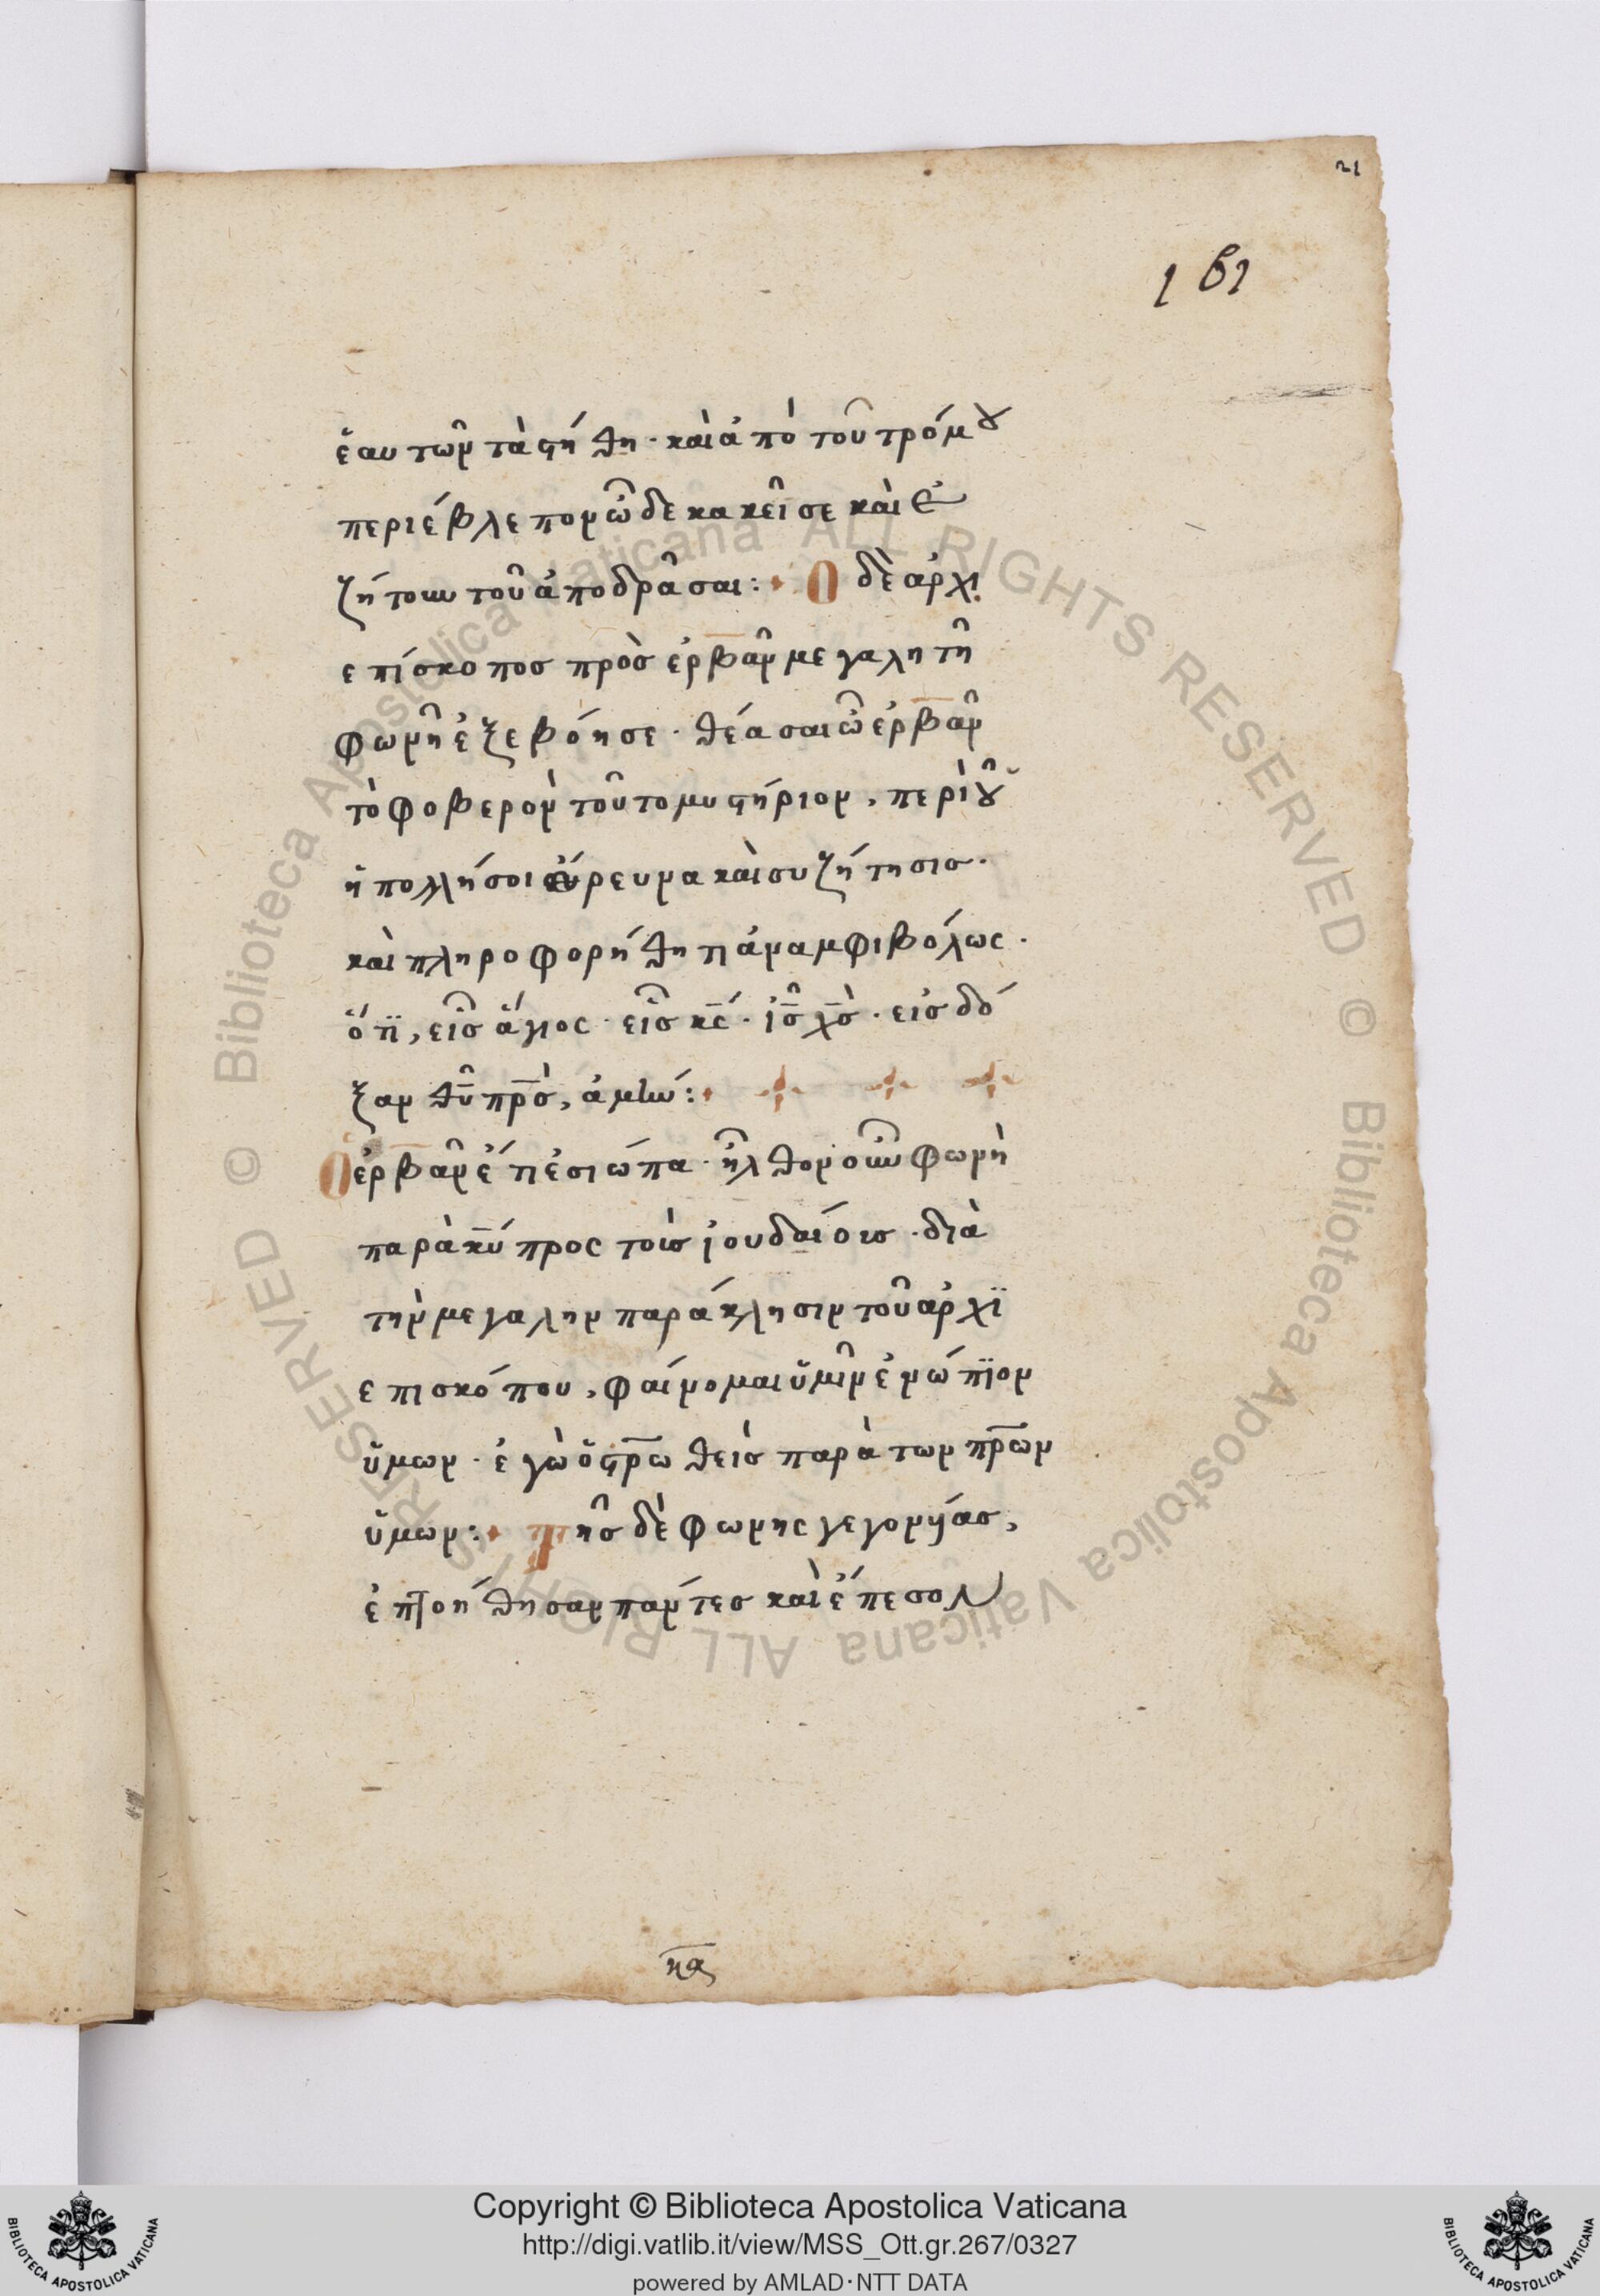 21
161
ἑαυτῶν τὰ στήθη· καὶ ἀπὸ τοῦ τρόμου
περιέβλεπον ὧδε κακεῖσε καὶ ἐ
ζήτουν τοῦ ἀποδρᾶσαι: Ὁ δὲ ἀρχι
επίσκοπος πρὸς ἑρβᾶν μεγαλη τῆ
φωνῆ ἐξεβόησε· θέασαι ὦ ἑρβᾶν
τὸ φοβερὸν τοῦτο μυστήριον, περὶ οὗ
ἡ πολλή σοι ἔρευνα καὶ συζήτησισ·
καὶ πληροφορήθητι ἀναμφιβόλως·
ὅτι, εἷσ ἅγιος· εἷσ κς· ἰσ χσ· εἰσ δό
ξαν θυ πρσ, ἀμήν:
Ὁ ἑρβᾶν ἔτι ἐσιώπα· ἦλθον οὖν φωνὴ
παρὰ κυ προς τοὺσ ἰουδαίουσ· διὰ
τὴν μεγαλην παράκλησιν τοῦ ἀρχι
επισκόπου, φαίνομαι ὑμῖν ἐνώπιον
ὑμων· ἐγὼ ὁ στρωθεὶσ παρὰ των πρων
ὑμων: Τῆσ δὲ φωνης γεγονυίασ,
ἐπτοήθησαν παντεσ καὶ ἔπεσον
κα
Copyright © Biblioteca Apostolica Vaticana
http://digi.vatlib.it/view/MSS_Ott.gr.267/0327
powered by AMLAD·NTT DATA
BIBLIOTECA APOSTOLICA VATICANA
BIBLIOTECA APOSTOLICA VATICANA
© Biblioteca Apostolica Vaticana ALL RIGHTS RESERVED
© Biblioteca Apostolica Vaticana ALL RIGHTS RESERVED